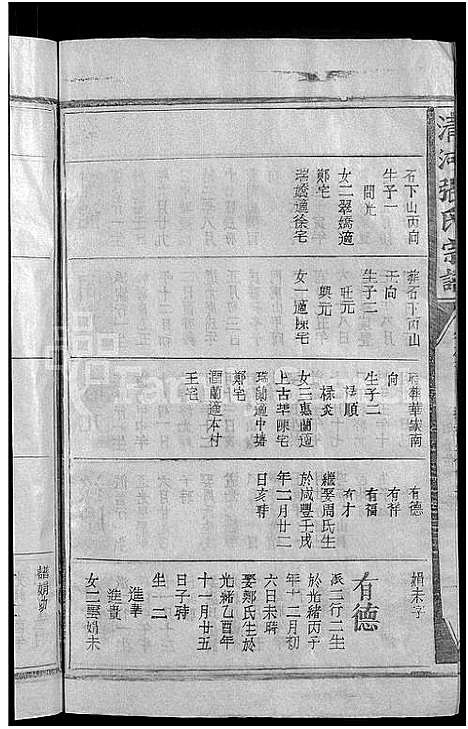 清河張氏宗譜
石下山丙向
生子一
間光
女二翠嬌適
鄭宅
瑞嬌適徐宅
葬石下丙山
壬向
生子二
旺元
興元
女一適陳宅
葬華家南
向
生子二
祿順
祿炎
女三惠蘭適
上古竿陳宅
瑞蘭適中塘
鄭宅
酒蘭適本村
王宅
有德
有祥
有福
有才
繼娶周氏生
於咸豐壬戌
年二月廿二
日亥時
娟未字
有德
派二行二生
於光緒丙子
年十二月初
六日未時
娶鄭氏生於
光緒乙酉年
十一月廿五
日子時
生二
進華
進貴
女二翠娟未